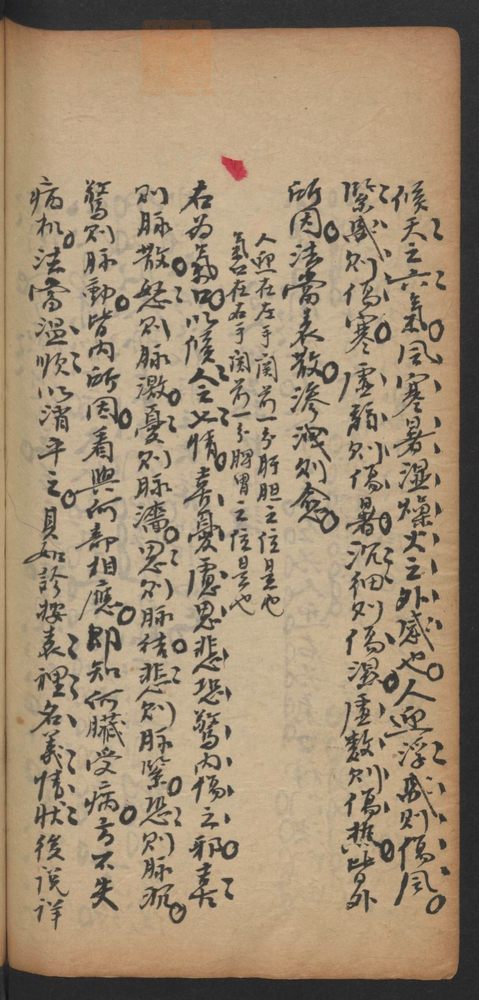 候天之六氣風寒暑濕燥火之外感也人迎浮盛則傷風
緊盛則傷寒虛弱則傷暑沉細則傷濕虛數則傷熱皆外
所因法當表散滲洩則愈
人迎在左手関前一分肝胆之位是也
氣口在右手関前一分脾胃之位是也
右為氣口以候人之七情喜憂慮思悲恐驚内傷之邪喜
則脉散怒則脉激憂則脉濇思則脉结悲則脉緊恐則脉沉
驚則脉動皆内所因看與何部相應即知何臟受病方不失
病机法當温順以消平之具如診按表裡名義情状後说详